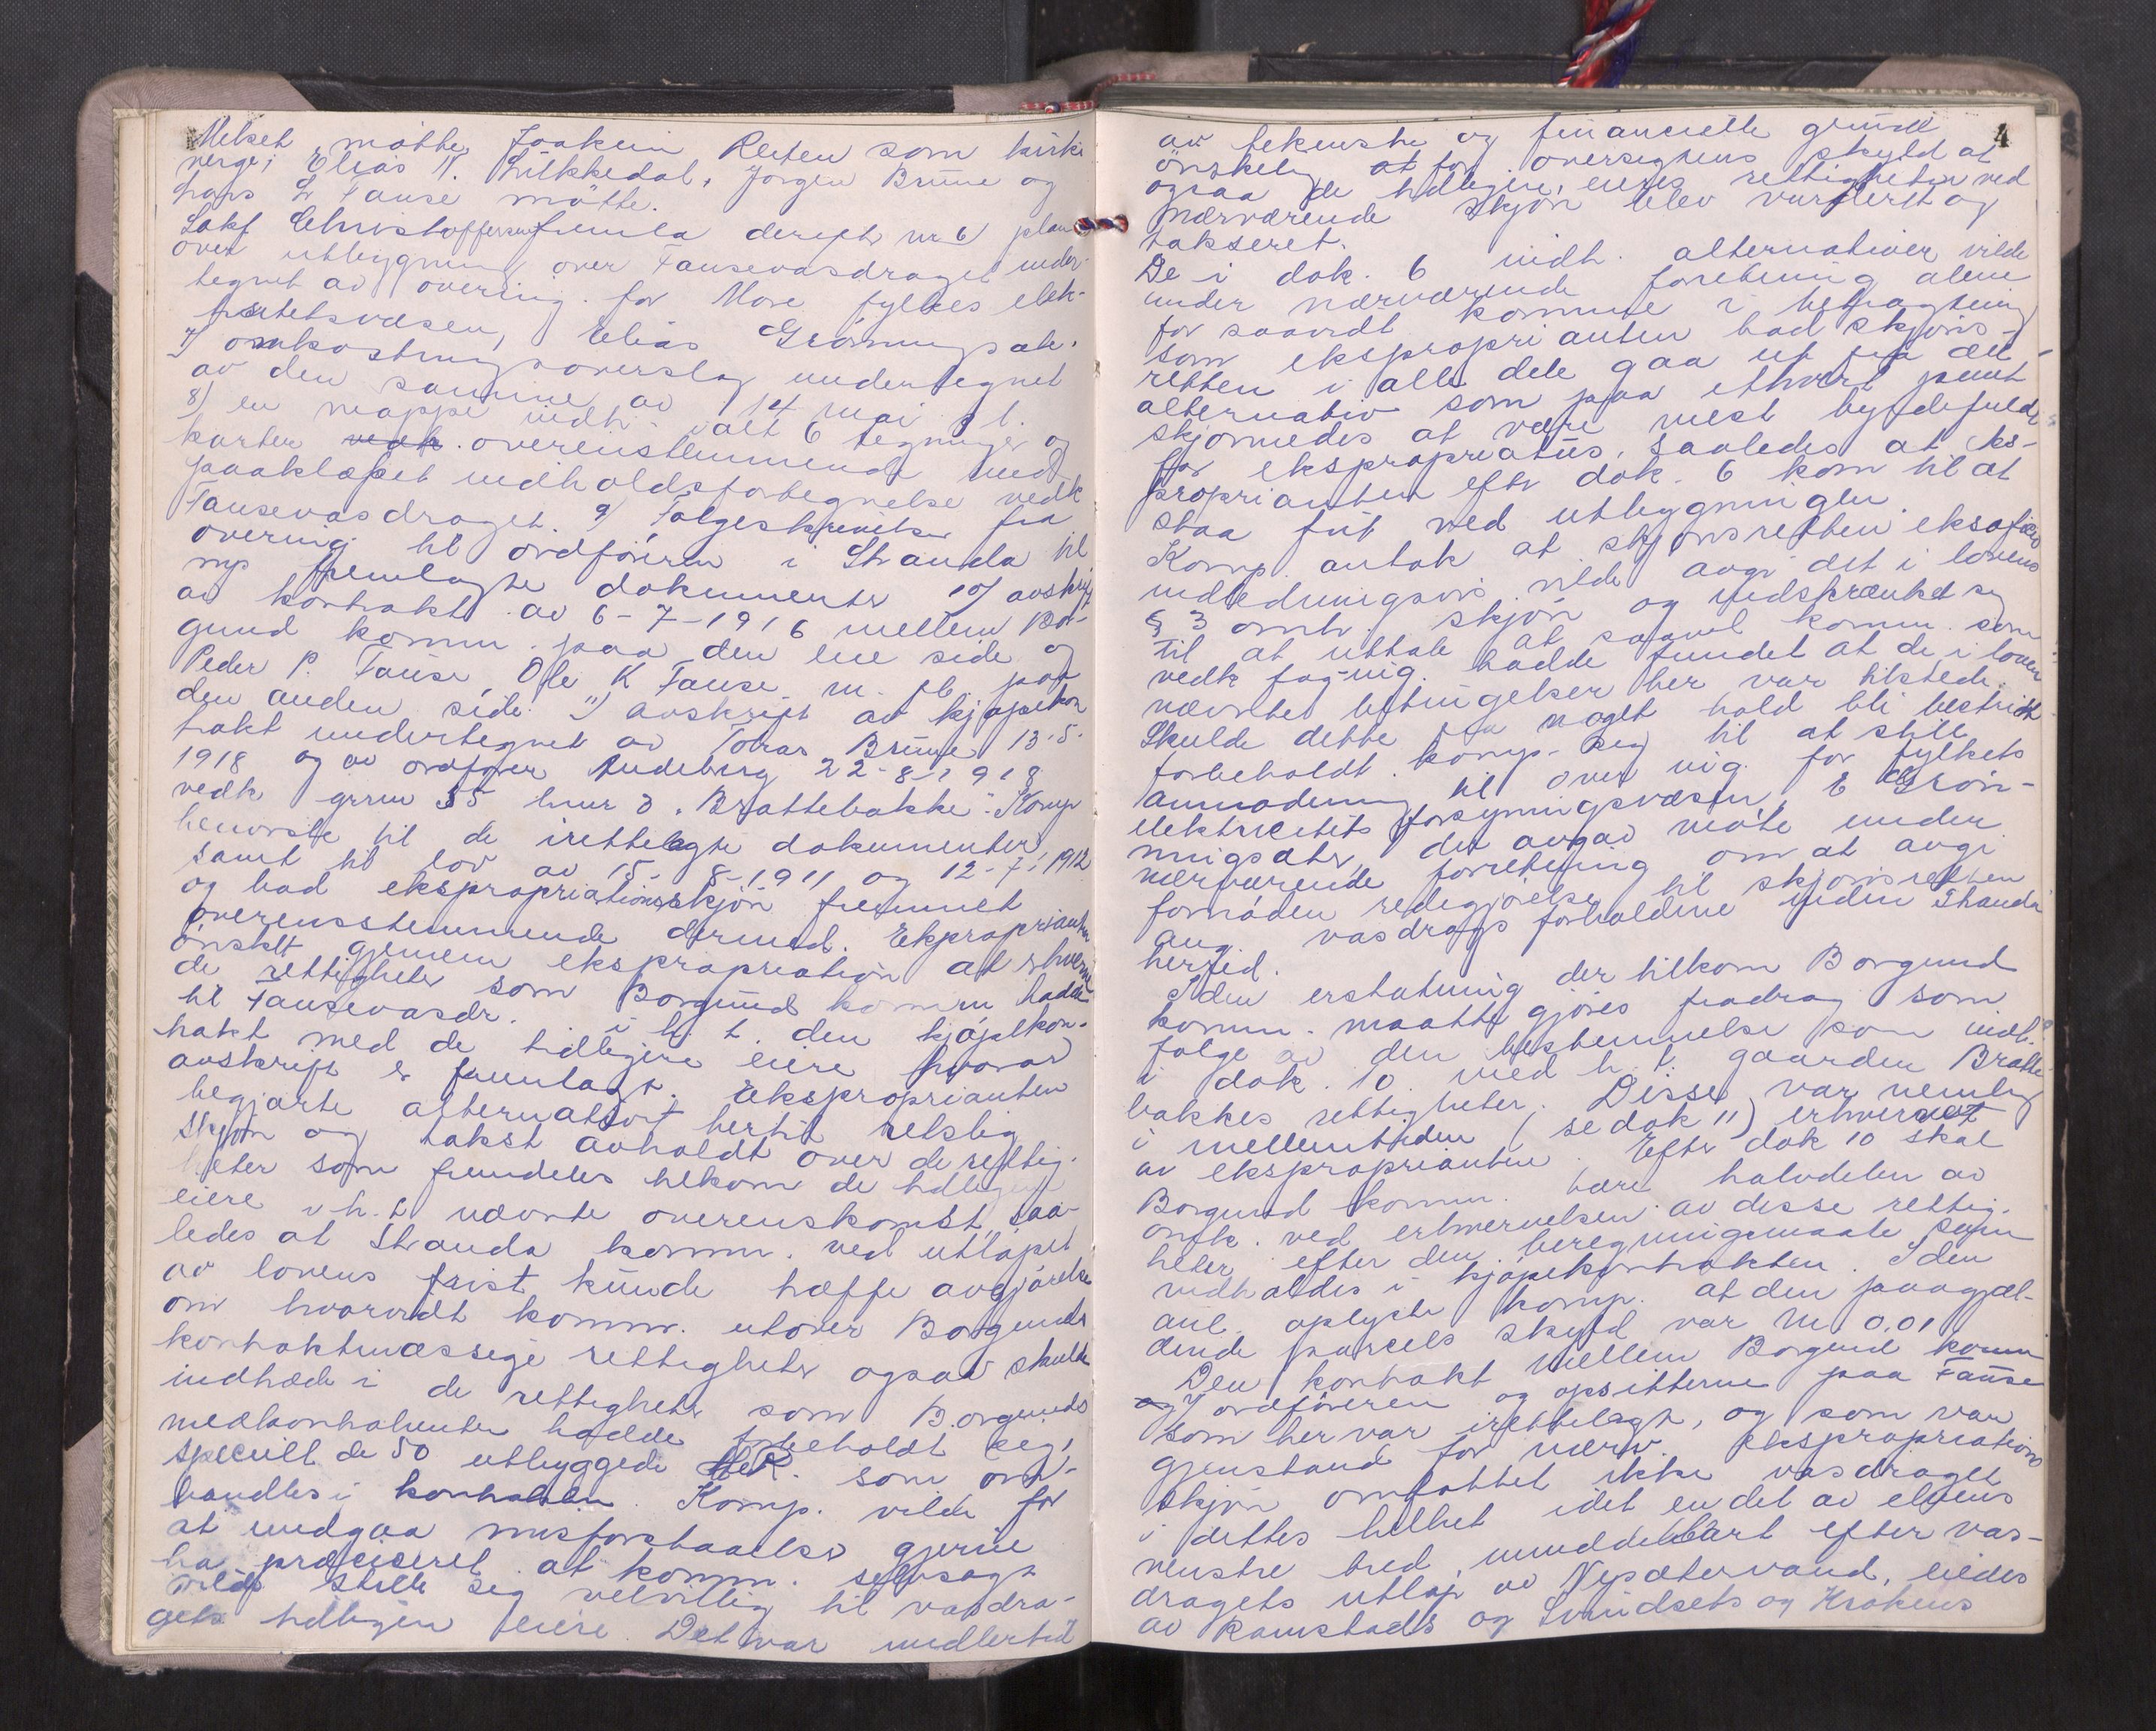 Melset møtte Joakim Reiten som kirke
verge; Elias N. Litkkedal, Jørgen Brune og
Lars L Fause møtte.
Sakf Christoffersen fremla derefter nr 6) plan
over utbygning over Fausevasdraget under-
tegnet av overing. for Møre fylkes elek-
tricitetsvæsen, Elias Grønningsæter.
7) omkostningsoverslag undertegnet
av den samme av 14 mai d. l.
8) en mappe indh. ialt 6 tegninger og
karter vedk. overensstemmende med
paaklæpet indholdsfortegnelse vedk
Fausevasdraget. 9) Følgeskrivelse fra
overing. til ordføreren i Stranda til
nys fremlagte dokumenter 10) avskrift
av kontrakt av 6-7-1916 mellem Bor-
gund komm. paa den ene side og
Peder P. Fause, Ole K Fause m. fl. paa
den anden side. 11) avskrift av kjøpekon
trakt undertegnet av Tomas Brune 13.5.
1918 og av ordfører Andeberg 22-8-1918
vedk grnr 35 bnr 3 "Brattebakke". Komp
henviste til de irettelagte dokumenter
samt til lov av 15-8-1911 og 12-7-1912
og bad ekspropriationsskjøn fremmet
overensstemmende dermed. Ekspropriantn
ønsket gjennem ekspropriation at erhverve
de rettigheter som Borgund komm hadde
til Fausevasdr. i h. t. den kjøpekon-
trakt med de tidligere eiere hvorav
avskrift er fremlagt. Eksproprianten
begjærte alternativt hertil retslig
skjøn og takst avholdt over de rettig-
heter som fremdeles tilkom de tidligere
eiere i h. t. nævnte overenskomst, saa-
ledes at Stranda komm. ved utløpet
av lovens frist kunde træffe avgjørelse
om hvorvidt komm. utover Borgunds
kontraktmæssige rettigheter ogsaa skulde
indtræde i de rettigheter som Borgunds
medkontrahenter hadde forbeholdt sig,
specielt de 50 utbyggede HK. som om-
handles i kontrakten. Komp. vilde for
at undgaa misforstaaelse gjerne
ha præciseret at komm. selvsagt
vilde stille seg velvillig til vasdra-
gets tidligere eiere. Det var imidlertid
4
av tekniske og financielle grund
ønskelig at for oversigtens skyld at
ogsaa de tidligere eieres rettigheter ved
nærværende skjøn blev vurdert og
takseret.
De i dok. 6 indh. alternativer vilde
under nærværende forretning alene
komme i betragtning
for saavidt
som ekspropri anten bad skjøns-
retten i alle dele gaa ut fra det
alternativ som paa ethvert punkt
skjønnedes at være mest byrdefuldt
for ekspropriatus, saaledes at eks-
proprianten efter dok. 6 kom til at
staa frit ved utbygningen.
Komp. antok at skjønsretten eksoficio
indledningsvis vilde avgi det i lovens
§ 3 omh. skjøn og indskrænket sig
til at uttale at saavel komm. som
vedk fag-ing. hadde fundet at de i loven
nævnte betingelser her var tilstede.
Skulde dette fra noget hold bli bestridt
forbeholdt komp. seg til at stille
anmodning til over ing. for fylkets
elektricitets forsyningsvæsen, E Grøn-
ningsæter, der avgav møte under
nærværende forretning om at avgi
fornøden redegjørelse til skjønsretten
ang. vasdrags forholdene inden Stranda
herred.
I den erstatning der tilkom Borgund
komm. maatte gjøres fradrag som
følge av den bestemmelse som indh.
i dok. 10 med h. t. gaarden Bratte-
bakkes rettigheter. Disse var nemlig
i mellemtiden (se dok 11) erhvervet
av eksproprianten. Efter dok 10 skal
Borgund komm. bære halvdelen av
omk. ved erhvervelsen av disse rettig-
heter efter den beregningsmaate som
indholdes i kjøpekontrakten. I den
anl. oplyste komp. at den paagjæl-
dende parcels skyld var M 0,01
Den kontrakt mellem Borgund komm
og ordføreren og opsitterne paa Fause
som her var irettelagt, og som var
gjenstand for nærv. ekspropriations
skjøn omfattet ikke vasdraget
i dettes helhet idet en del av elvens
venstre bred, umiddelbart efter vas-
dragets utløp av Nysætervand, eiedes
av Ramstads og Svindsets og Krokens